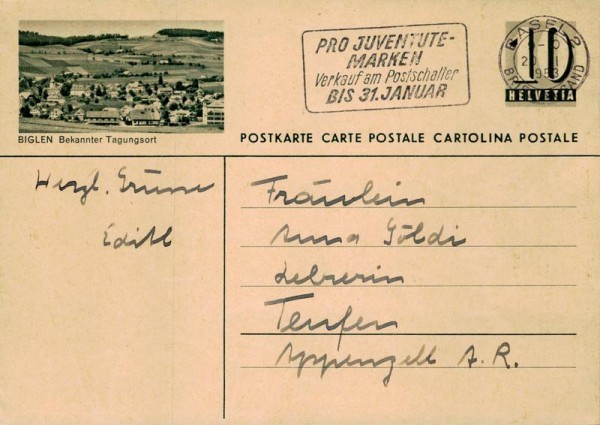 PRO JUVENTUTE-
MARKEN
Verkauf am Postschalter
BIS 31. JANUAR
BASEL 2
1953
10
HELVETIA
BIGLEN Bekannter Tagungsort
POSTKARTE CARTE POSTALE CARTOLINA POSTALE
Herzl. Grüsse
Edith
Fräulein
Anna Göldi
Lehrerin
Teufen
Appenzell A. R.